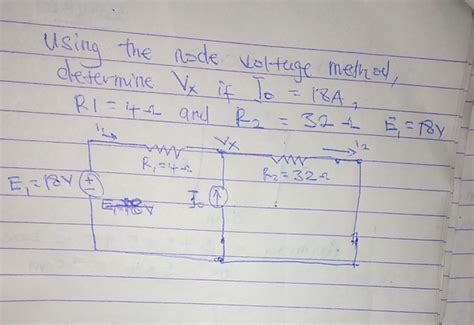 Using the node voltage method,
determine Vx if Io = 18A,
R1 = 4Ω and R2 = 32Ω E1 = 18V
i1 Vx i2
R1 = 4Ω R2 = 32Ω
E1 = 18V ± Io